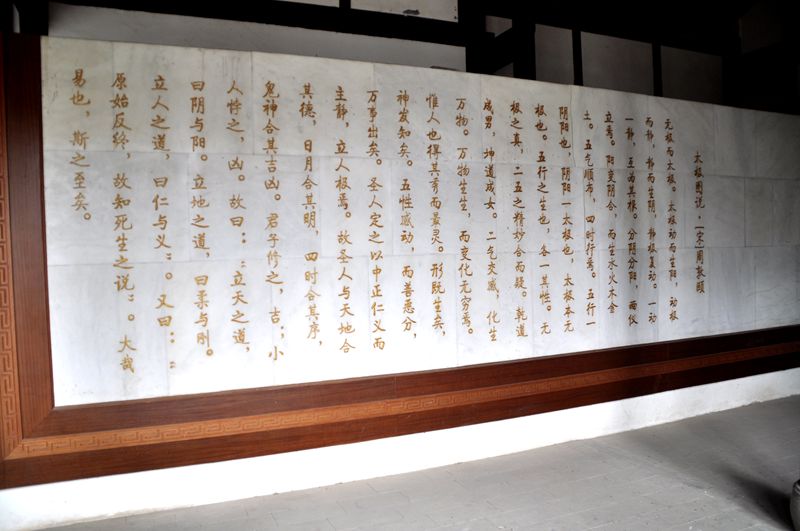 太极图说·[宋]周敦颐
无极而太极。太极动而生阳，动极
而静，静而生阴，静极复动。一动
一静，互为其根。分阴分阳，两仪
立焉。阳变阴合，而生水火木金
土。五气顺布，四时行焉。五行一
阴阳也，阴阳一太极也，太极本无
极也。五行之生也，各一其性。无
极之真，二五之精妙合而凝。乾道
成男，坤道成女。二气交感，化生
万物。万物生生，而变化无穷焉。
惟人也得其秀而最灵。形既生矣，
神发知矣。五性感动，而善恶分，
万事出矣。圣人定之以中正仁义而
主静，立人极焉。故圣人与天地合
其德，日月合其明，四时合其序，
鬼神合其吉凶。君子修之，吉；小
人悖之，凶。故曰：“立天之道，
曰阴与阳。立地之道，曰柔与刚。
立人之道，曰仁与义”。又曰：“
原始反终，故知死生之说”。大哉
易也，斯之至矣。